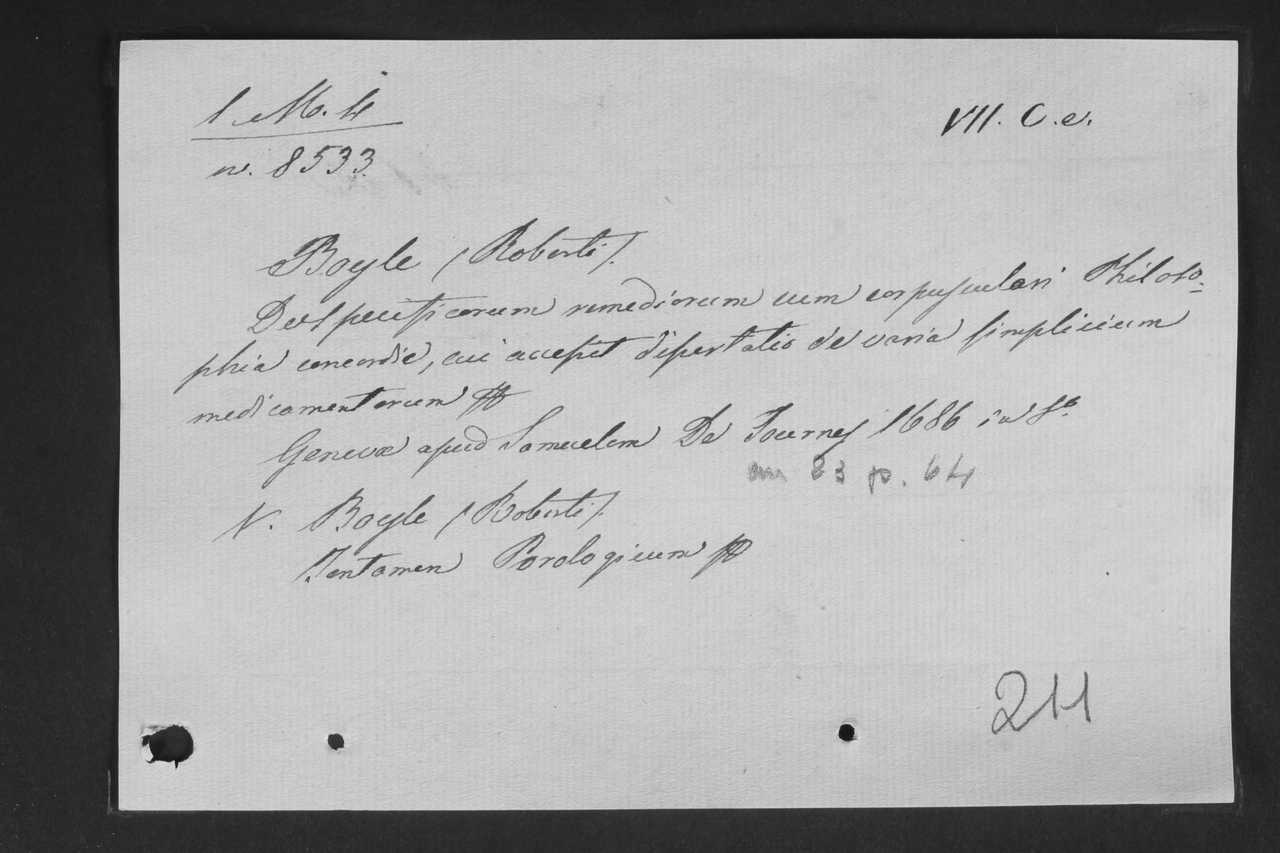 1. M. 4
n. 8533.
VII. C. e.
Boyle (Roberti).
De Specificorum remediorum cum corpusculari Philoso-
phia concordia, cui accessit dissertatio de varia simplicium
medicamentorum
Genevæ apud Samuelem De Tournes 1686 in 8.º
33 p. 64
V. Boyle (Roberti).
Tentamen Porologicum
211